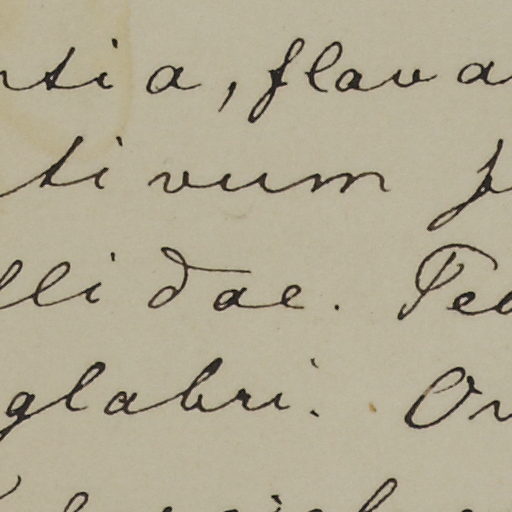 ntia, flava
tivum p
llidae. Ped
glabri. Ov